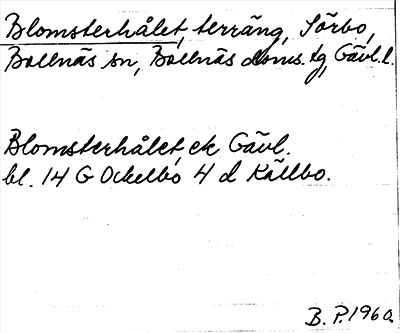 Blomsterhålet, terräng, Sörbo,
Bollnäs sn, Bollnäs doms. tg, Gävl. l.
Blomsterhålet, ek Gävl.
bl. 14 G Ockelbo 4 d Källbo.
B. P. 1960.